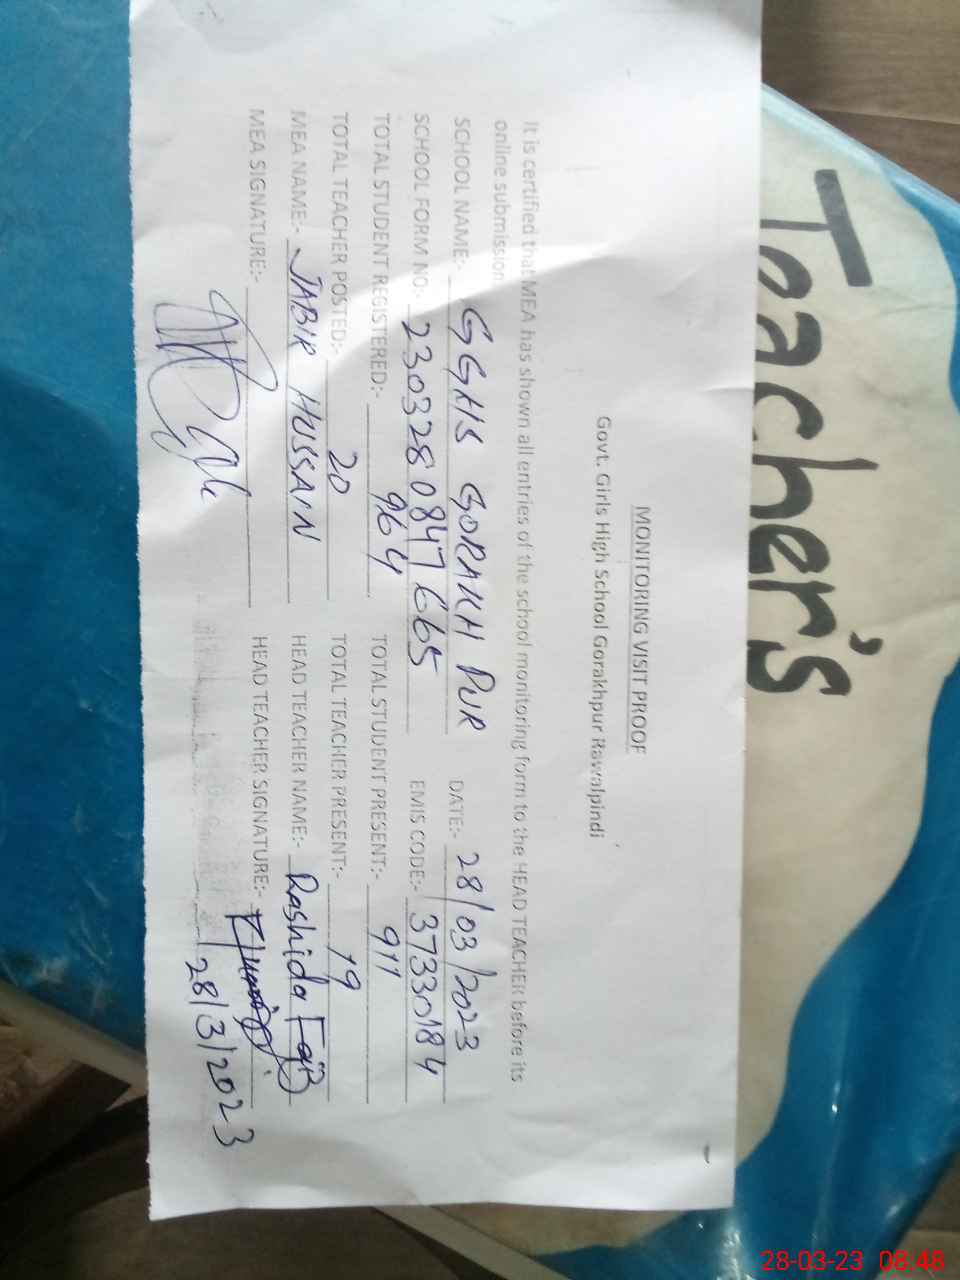 MONITORING VISIT PROOF
Govt. Girls High School Gorakhpur Rawalpindi
It is certified that MEA has shown all entries of the school monitoring form to the HEAD TEACHER before its
online submission
SCHOOL NAME:- GGHS GORAKH PUR DATE:- 28/03/2023
SCHOOL FORM NO:- 2303280847665 EMIS CODE:- 37330184
TOTAL STUDENT REGISTERED:- 964 TOTAL STUDENT PRESENT:- 911
TOTAL TEACHER POSTED:- 20 TOTAL TEACHER PRESENT:- 19
MEA NAME:- JABIR HUSSAIN HEAD TEACHER NAME:- Rashida
MEA SIGNATURE:- HEAD TEACHER SIGNATURE:-
28/3/2023
Teacher's
28-03-23 08:48